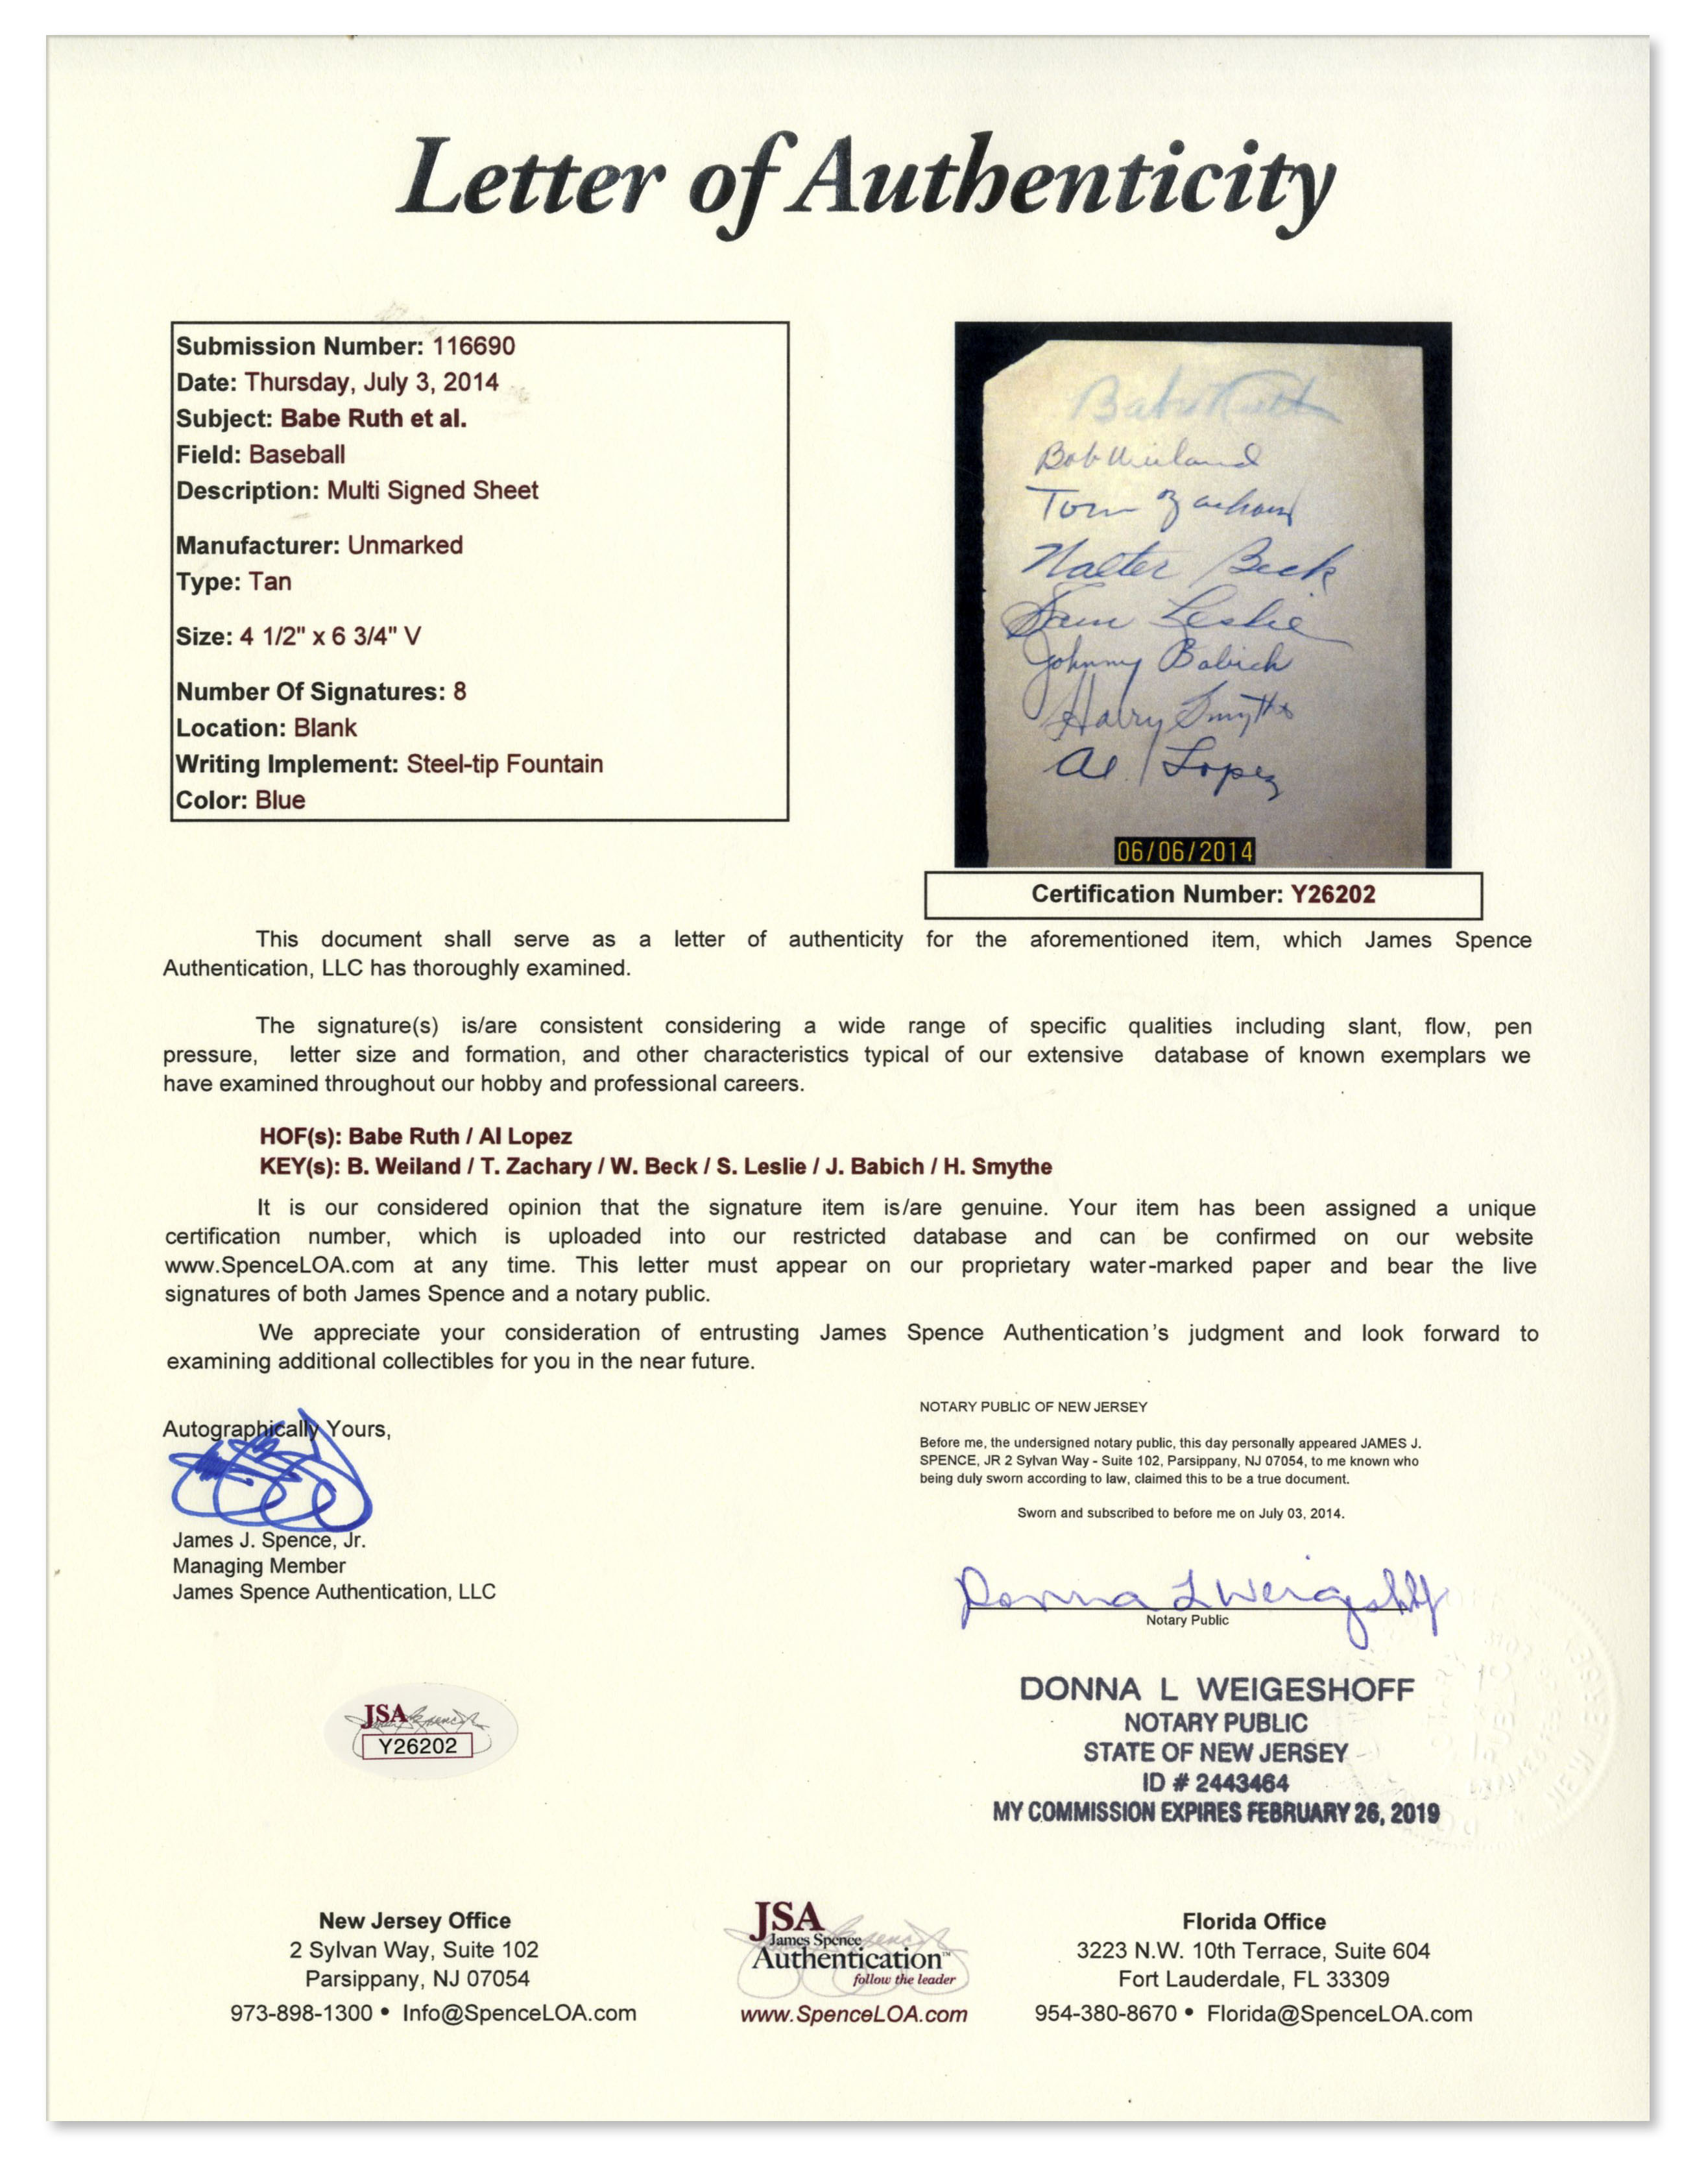 Letter of Authenticity
Submission Number: 116690
Date: Thursday, July 3, 2014
Subject: Babe Ruth et al.
Field: Baseball
Description: Multi Signed Sheet
Manufacturer: Unmarked
Type: Tan
Size: 4 1/2" x 6 3/4" V
Number Of Signatures: 8
Location: Blank
Writing Implement: Steel-tip Fountain
Color: Blue
Babe Ruth
Bob Weiland
Tom Zachary
Walter Beck
Sam Leslie
Johnny Babich
Harry Smythe
Al Lopez
06/06/2014
Certification Number: Y26202
This document shall serve as a letter of authenticity for the aforementioned item, which James Spence
Authentication, LLC has thoroughly examined.
The signature(s) is/are consistent considering a wide range of specific qualities including slant, flow, pen
pressure, letter size and formation, and other characteristics typical of our extensive database of known exemplars we
have examined throughout our hobby and professional careers.
HOF(s): Babe Ruth / Al Lopez
KEY(s): B. Weiland / T. Zachary / W. Beck / S. Leslie / J. Babich / H. Smythe
It is our considered opinion that the signature item is/are genuine. Your item has been assigned a unique
certification number, which is uploaded into our restricted database and can be confirmed on our website
www.SpenceLOA.com at any time. This letter must appear on our proprietary water-marked paper and bear the live
signatures of both James Spence and a notary public.
We appreciate your consideration of entrusting James Spence Authentication's judgment and look forward to
examining additional collectibles for you in the near future.
Autographically Yours,
James J. Spence, Jr.
Managing Member
James Spence Authentication, LLC
NOTARY PUBLIC OF NEW JERSEY
Before me, the undersigned notary public, this day personally appeared JAMES J.
SPENCE, JR 2 Sylvan Way - Suite 102, Parsippany, NJ 07054, to me known who
being duly sworn according to law, claimed this to be a true document.
Sworn and subscribed to before me on July 03, 2014.
Donna L Weigeshoff
Notary Public
DONNA L WEIGESHOFF
NOTARY PUBLIC
STATE OF NEW JERSEY
ID # 2443464
MY COMMISSION EXPIRES FEBRUARY 26, 2019
JSA
Y26202
New Jersey Office
2 Sylvan Way, Suite 102
Parsippany, NJ 07054
973-898-1300 • Info@SpenceLOA.com
JSA
James Spence
Authentication™
follow the leader
www.SpenceLOA.com
Florida Office
3223 N.W. 10th Terrace, Suite 604
Fort Lauderdale, FL 33309
954-380-8670 • Florida@SpenceLOA.com